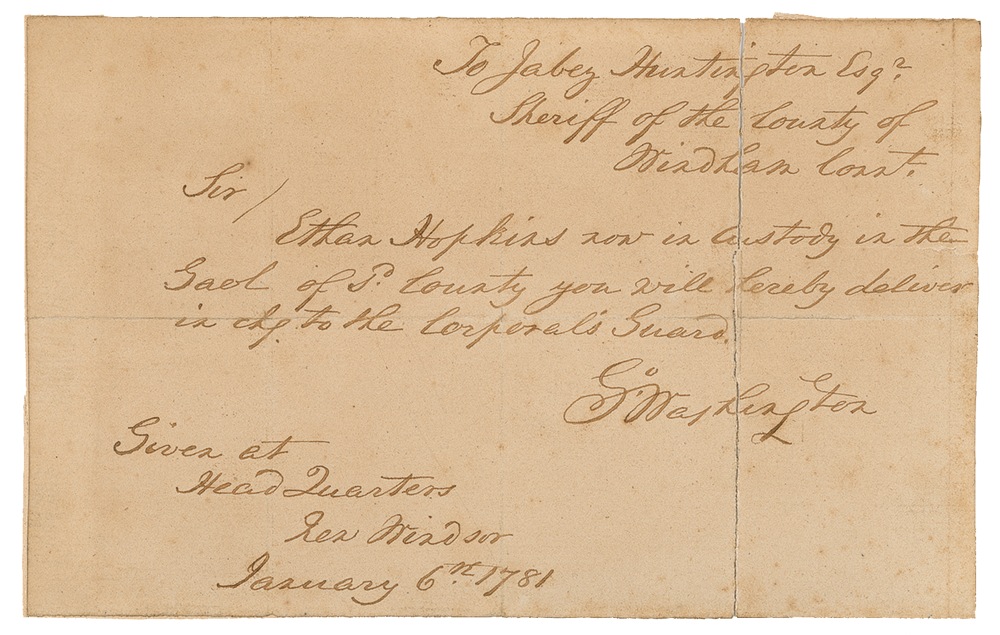 To Jabez Huntington Esqr.
Sheriff of the County of
Windham Connt.
Sir /
Ethan Hopkins now in custody in the
Gaol of sd. County you will hereby deliver
in chg. to the Corporal's Guard.
Go. Washington
Given at
Head Quarters
New Windsor
January 6th 1781